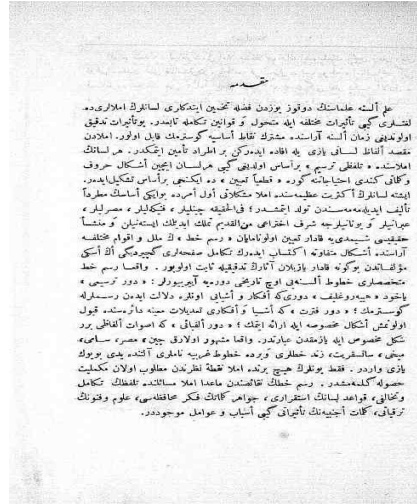 مقدمه
علم ألسنه علماسنك دوقوز يوزدن فضله تخمين ايتدكارى لسانلرك املالريده
لغتلرى كبى تأثيرات مختلفه ايله متحول و قوانين تكامله تابعدر. بوتأثيرات تدقيق
اولونديغى زمان ألسنه آراسنده مشترك نقاط أساسيه كوسترمك قابل اولور. املادن
مقصد ألفاظ لسانى يازى يله افاده ايدهركن بر اطراد تأمين ايتمكدر. هر لسانك
املاسنده « تلفظى ترسيم » براساس اولديغى كبى هرلسان ايچين أشكال حروف
وكلماتى كندى احتياجاتنه كوره « قطعياً تعيين » ده ايكنجى برأساس تشكيل‌ايدر.
ايشته لسانلرك أكثريت عظيمه‌سنده املا مشكلاتى أول أمرده بوايكى أساسك مطرداً
تأليف ايديله‌مه‌مسندن تولد ايتمشدر؛ فى‌الحقيقه چينليلر ، فنيكه‌ليلر ، مصرليلر ،
عبرانيلر و يونانيلرجه شرف اختراعى من‌القديم تملك ايديلمك ايسته‌نيلن و منشأ
حقيقيسى شيمدى‌يه قادار تعيين اولونامايان « رسم خط » ك ملل و اقوام مختلفه
آراسنده أشكال متفاوته اكتساب ايدهرك تكامل صفحه‌لرى كچيرديكى أك أسكى
مؤلفاتدن بوكونه قادار يازيلان آثارك تدقيقيله ثابت اوليور. واقعا رسم خط
متخصصلرى خطوط ألسنه‌يى اوچ تاريخى دوره‌يه آييريورلر : « دور رسمى »
ياخود « هيه‌روغليف » دورى‌كه أفكار و أشيايى اونلره دلالت ايدهن رسملرله
كوسترمك ؛ « دور فترت » كه أشيا و أفكارى تعديلات معينه دائره‌سنده قبول
اولونمش أشكال مخصوصه ايله ارائه ايتمك ؛ « دور ألفبائى » كه اصوات ألفاظى برر
شكل مخصوص ايله يازمقدن عبارتدر. واقعا مشهور اولارق چين ، مصر ، سامى ،
ميخى ، سانسقريت ، زند خطلرى و برده خطوط غربيه ناملرى آلتنده يدى بويوك
يازى واردر. فقط بونلرك هيچ برنده املا نقطۀ نظرندن مطلوب اولان مكمليت
حصوله كلمه‌مشدر. رسم خطك نقائصندن ماعدا املا مسائلنده تلفظك تكامل
وتخالفى ، قواعد لسانك استقرارى ، جواهر كلماتك فكر محافظه‌سى ، علوم وفنونك
ترقياتى ، كلمات أجنبيه‌نك تأثيراتى كبى أسباب و عوامل موجوددر.